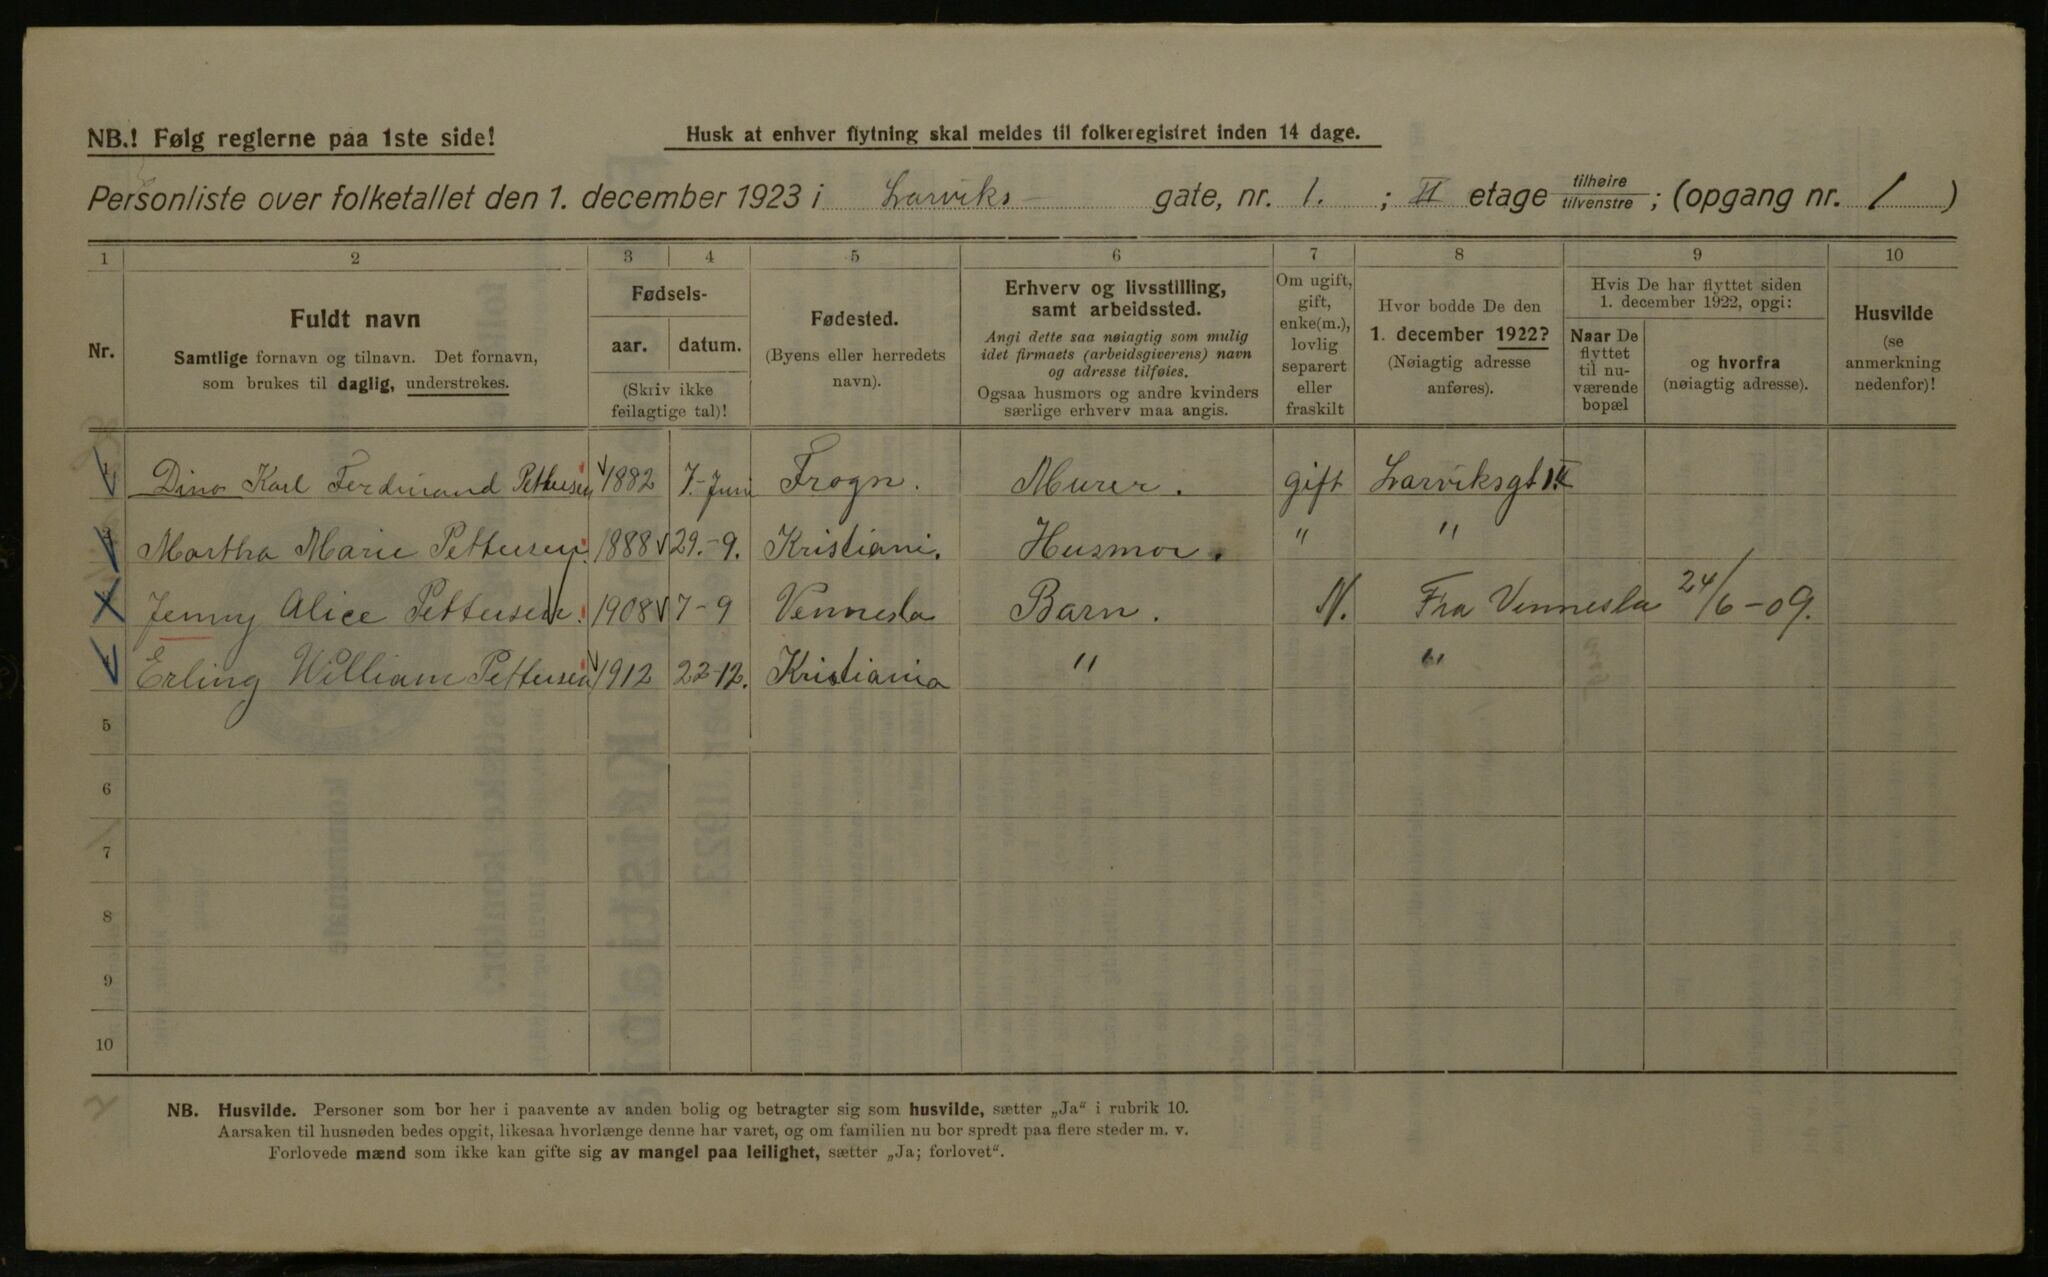 NB.! Følg reglerne paa 1ste side!
Husk at enhver flytning skal meldes til folkeregistret inden 14 dage.
Personliste over folketallet den 1. december 1923 i Larviks- gate, nr. 1. ; II etage tilhøire tilvenstre ; (opgang nr. 1 )
1 2 3 4 5 6 7 8 9 10
Nr.
Fuldt navn
Samtlige fornavn og tilnavn. Det fornavn,
som brukes til daglig, understrekes.
Fødsels-
aar. datum.
(Skriv ikke
feilagtige tal)!
Fødested.
(Byens eller herredets
navn).
Erhverv og livsstilling,
samt arbeidssted.
Angi dette saa nøiagtig som mulig
idet firmaets (arbeidsgiverens) navn
og adresse tilføies.
Ogsaa husmors og andre kvinders
særlige erhverv maa angis.
Om ugift,
gift,
enke(m.),
lovlig
separert
eller
fraskilt
Hvor bodde De den
1. december 1922?
(Nøiagtig adresse
anføres).
Hvis De har flyttet siden
1. december 1922, opgi:
Naar De
flyttet
til nu-
værende
bopæl
og hvorfra
(nøiagtig adresse).
Husvilde
(se
anmerkning
nedenfor)!
Karl Ferdinand Pettersen 1882 7.-Juni Frogn. Murer. gift Larviksgt 1
Martha Marie Pettersen. 1888 29.-9. Kristiani. Husmor. " "
Jenny Alice Pettersen. 1908 7-9 Vennesla Barn. N. Fra Vennesla 24/6-09.
Erling William Pettersen 1912 22-12. Kristiania " "
5
6
7
8
9
10
NB. Husvilde. Personer som bor her i paavente av anden bolig og betragter sig som husvilde, sætter „Ja" i rubrik 10.
Aarsaken til husnøden bedes opgit, likesaa hvorlænge denne har varet, og om familien nu bor spredt paa flere steder m. v.
Forlovede mænd som ikke kan gifte sig av mangel paa leilighet, sætter „Ja; forlovet".